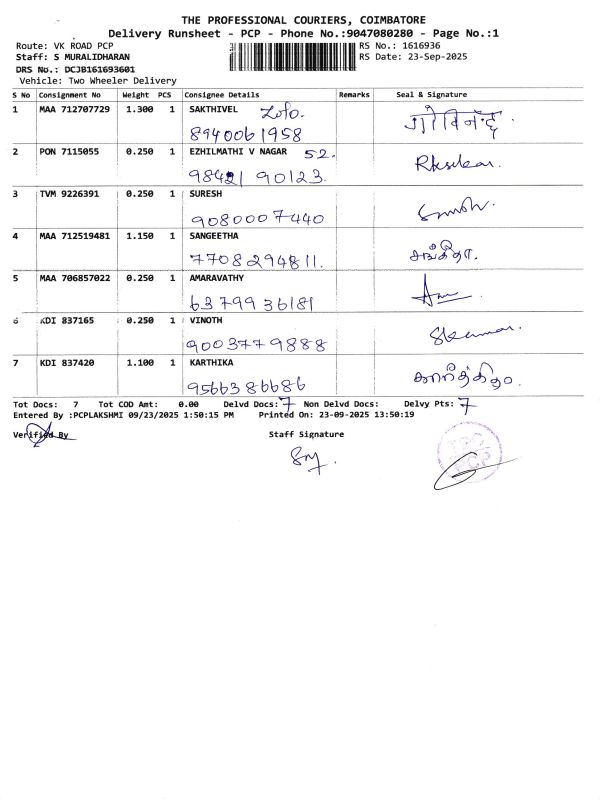 THE PROFESSIONAL COURIERS, COIMBATORE
Delivery Runsheet - PCP - Phone No.:9047080280 - Page No.:1
Route: VK ROAD PCP RS No.: 1616936
Staff: S MURALIDHARAN RS Date: 23-Sep-2025
DRS No.: DCJB161693601
Vehicle: Two Wheeler Delivery
S No Consignment No Weight PCS Consignee Details Remarks Seal & Signature
1 MAA 712707729 1.300 1 SAKTHIVEL
8940061958 गोविन्द
2 PON 7115055 0.250 1 EZHILMATHI V NAGAR 52.
98421 90123
3 TVM 9226391 0.250 1 SURESH
9080007440
4 MAA 712519481 1.150 1 SANGEETHA
7708294811. சங்கீதா.
5 MAA 706857022 0.250 1 AMARAVATHY
6379936181
6 KDI 837165 0.250 1 VINOTH
9003779888
7 KDI 837420 1.100 1 KARTHIKA
9566386686
Tot Docs: 7 Tot COD Amt: 0.00 Delvd Docs: 7 Non Delvd Docs: Delvy Pts: 7
Entered By :PCPLAKSHMI 09/23/2025 1:50:15 PM Printed On: 23-09-2025 13:50:19
Verified By Staff Signature
PCP